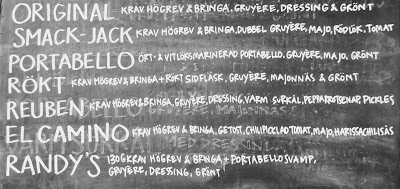 ORIGINAL KRAV HÖGREV & BRINGA, GRUYÈRE, DRESSING & GRÖNT
SMACK-JACK KRAV HÖGREV & BRINGA, DUBBEL GRUYÈRE, MAJO, RÖDLÖK, TOMAT
PORTABELLO ÖRT- & VITLÖKSMARINERAD PORTABELLO, GRUYÈRE, MAJO, GRÖNT
RÖKT KRAV HÖGREV & BRINGA + RÖKT SIDFLÄSK, GRUYÈRE, MAJONNÄS & GRÖNT
REUBEN KRAV HÖGREV & BRINGA, GRUYÈRE, DRESSING, VARM SURKÅL, PEPPARROTSENAP, PICKLES
EL CAMINO KRAV HÖGREV & BRINGA, GETOST, CHILIPICKLAD TOMAT, MAJO, HARISSACHILISÅS
RANDY'S 130G KRAV HÖGREV & BRINGA + PORTABELLOSVAMP,
GRUYÈRE, DRESSING, GRÖNT